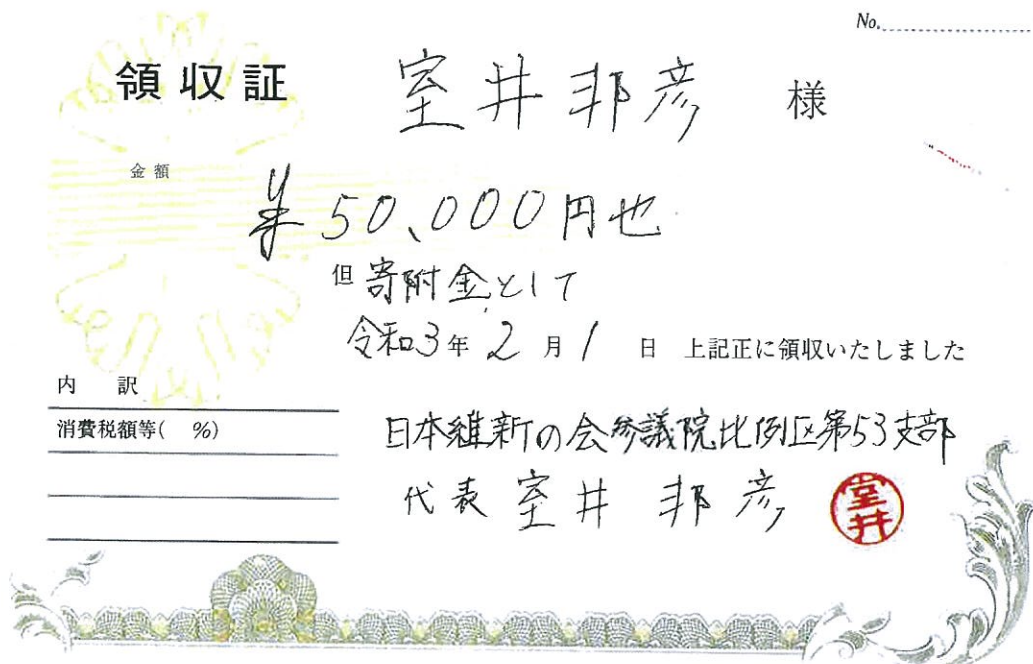 No.
領収証 室井邦彦 様
金額
¥50,000円也
但 寄附金として
令和3年2月1日 上記正に領収いたしました
内訳
消費税額等( %)
日本維新の会参議院比例区第53支部
代表 室井 邦彦
室井